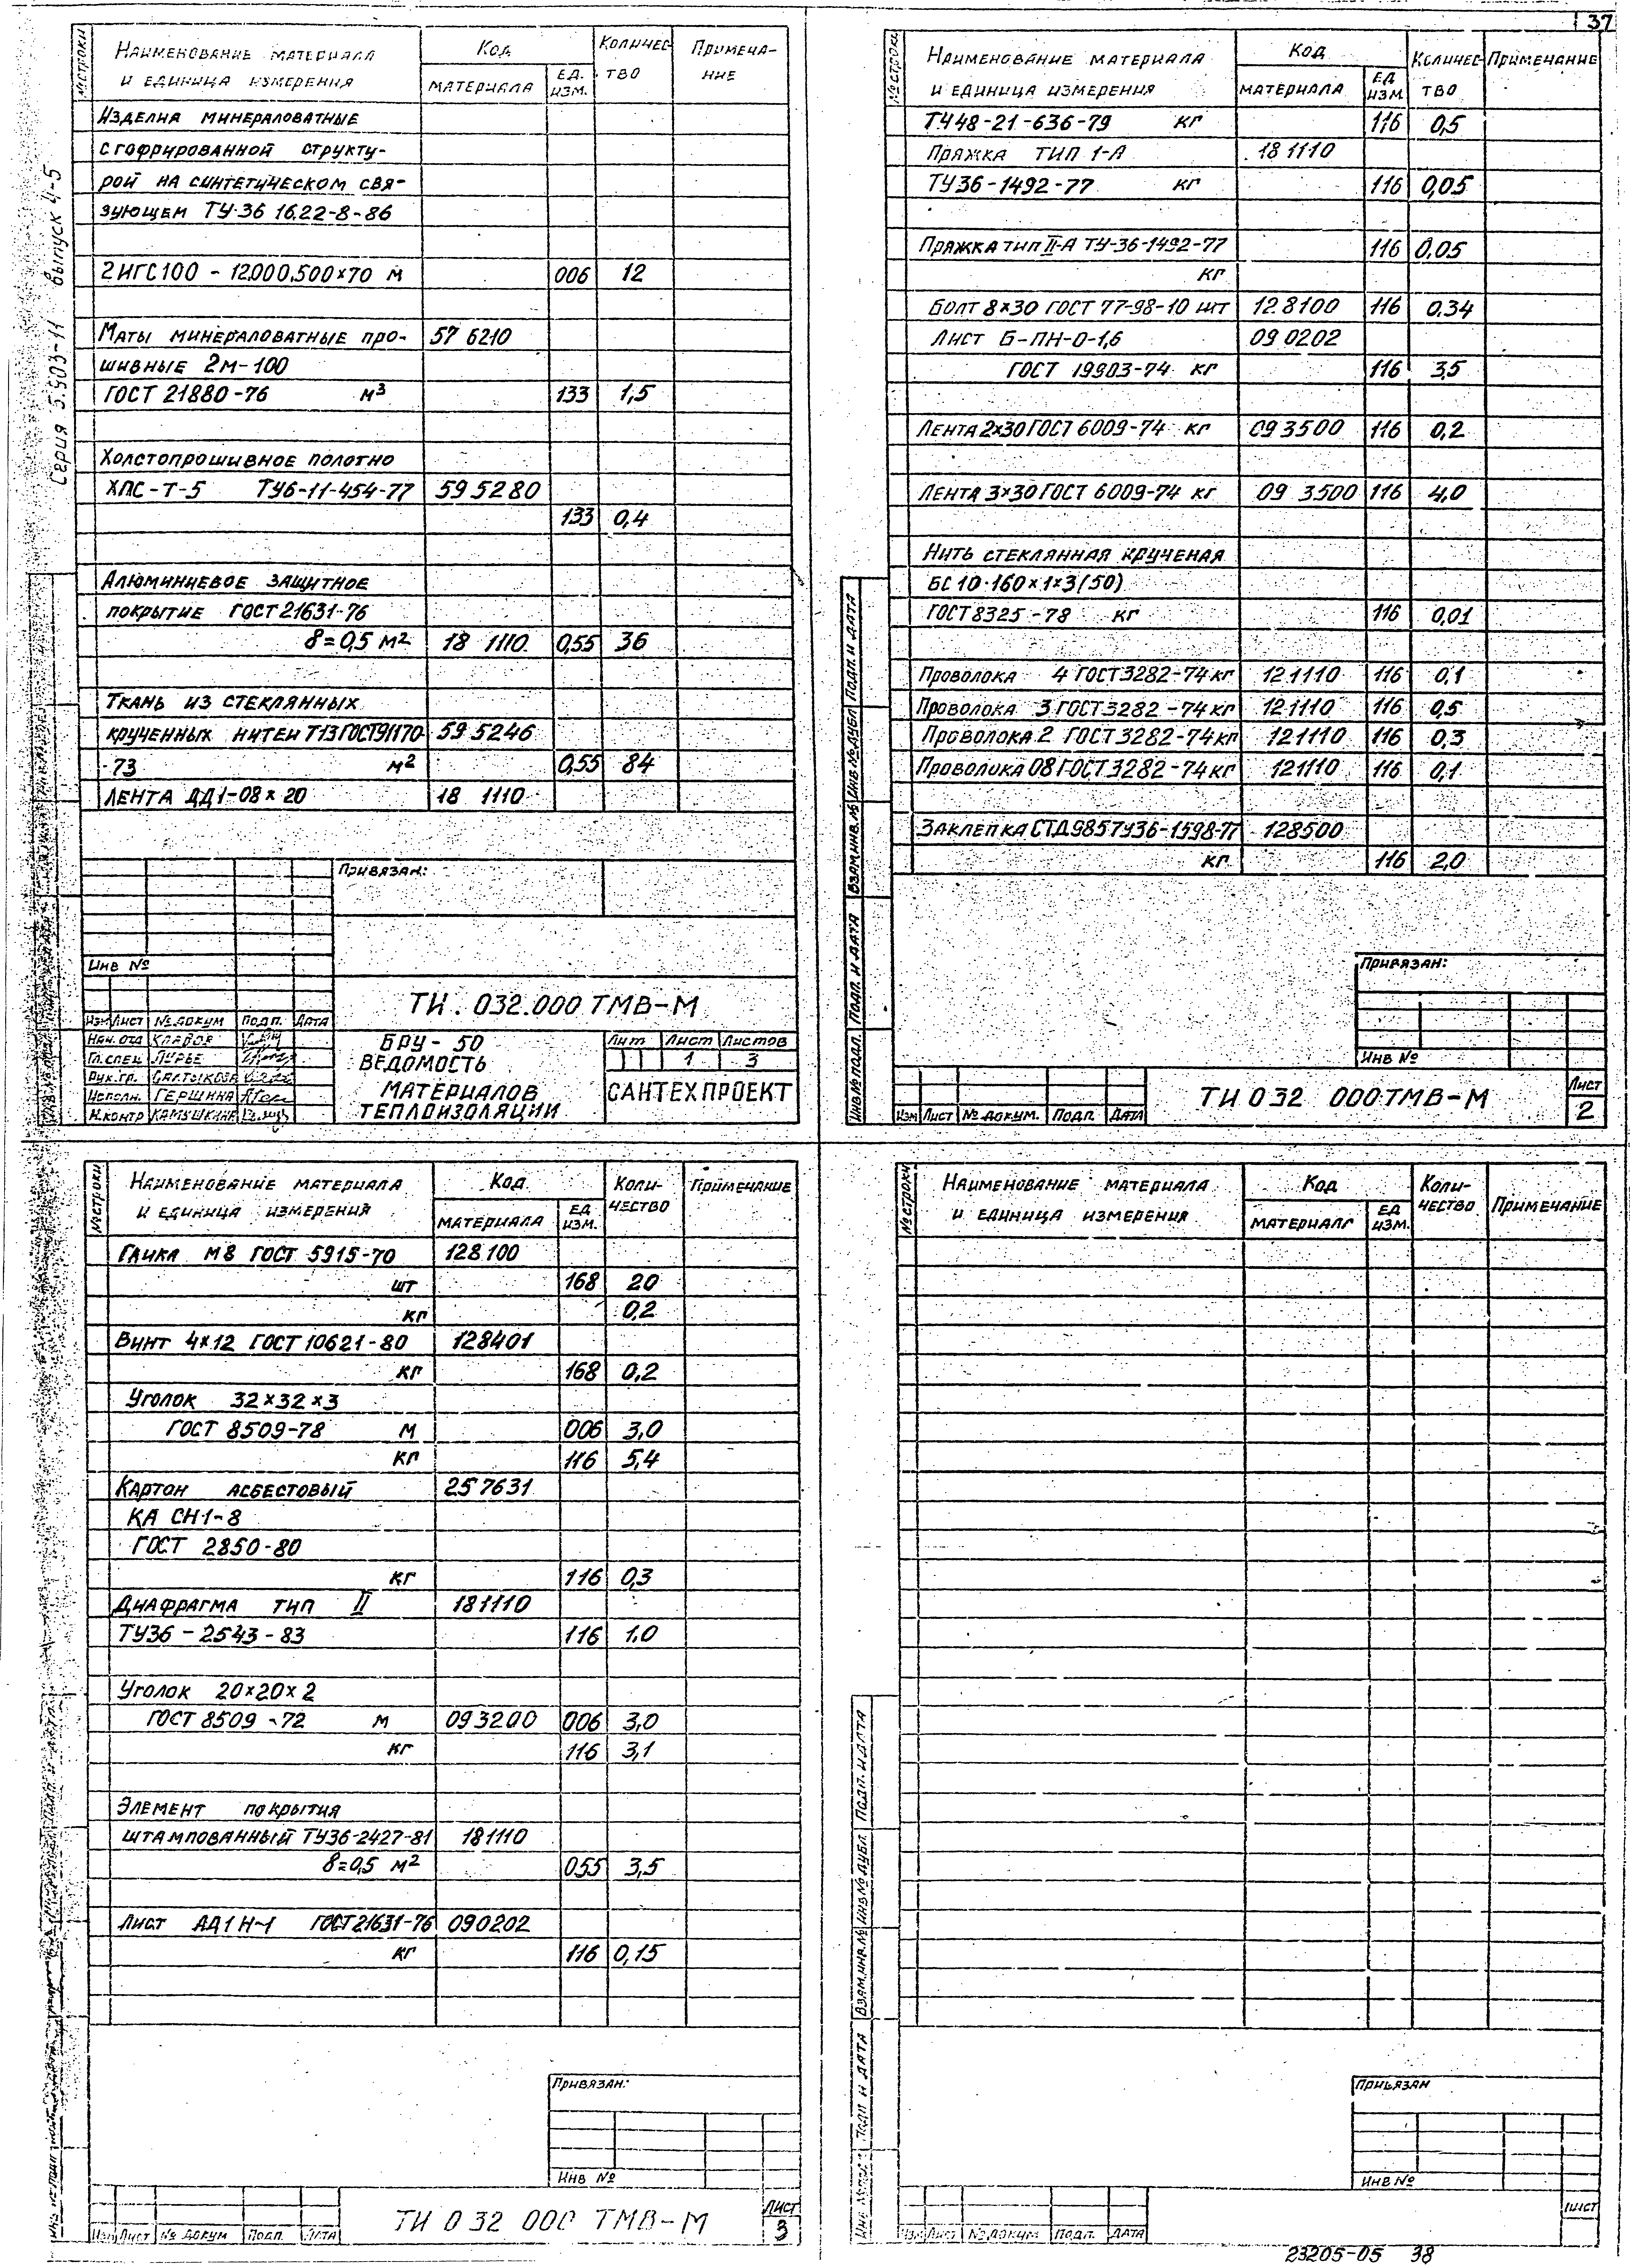 37
Серия 5.903-11 выпуск 4-5
№ строки
Наименование материала и единица измерения
Код
материала
Ед. изм.
Количество
Примечание
Изделия минераловатные
с гофрированной структу-
рой на синтетическом свя-
зующем ТУ-36 16.22-8-86
2ИГС100 - 12.000.500×70 м 006 12
Маты минераловатные про- 57 6210
шивные 2м-100
ГОСТ 21880-76 м³ 133 1,5
Холстопрошивное полотно
ХПС-Т-5 ТУ6-11-454-77 59 5280
133 0,4
Алюминиевое защитное
покрытие ГОСТ 21631-76
δ=0,5 м² 18 1110 0,55 36
Ткань из стеклянных
крученных нитей Т13 ГОСТ 91170- 59 5246
-73 м² 0,55 84
Лента АД1-08×20 18 1110
Привязан:
Инв №
Изм Лист № докум Подп. Дата
Нач. отд
Гл. спец. Лурье
Рук. гр. Салтыкова
Исполн. Гершина
Н.контр Камушкина
ТИ.032.000 ТМВ-М
БРУ-50
Ведомость
материалов
теплоизоляции
Лит Лист Листов
1 3
САНТЕХПРОЕКТ
№ строки
Наименование материала и единица измерения
Код
материала
Ед изм
Количество
Примечание
ТУ48-21-636-79 кг 116 0,5
Пряжка тип 1-А 18 1110
ТУ36-1492-77 кг 116 0,05
Пряжка тип II-А ТУ-36-1492-77 116 0,05
кг
Болт 8×30 ГОСТ 77-98-10 шт 12 8100 116 0.34
Лист Б-ПН-О-1,6 09 0202
ГОСТ 19903-74 кг 116 3,5
Лента 2×30 ГОСТ 6009-74 кг 09 3500 116 0,2
Лента 3×30 ГОСТ 6009-74 кг 09 3500 116 4,0
Нить стеклянная крученая
БС 10-160×1×3(50)
ГОСТ 8325-78 кг 116 0,01
Проволока 4 ГОСТ 3282-74 кг 121110 116 0,1
Проволока 3 ГОСТ 3282-74 кг 121110 116 0,5
Проволока 2 ГОСТ 3282-74 кг 121110 116 0,3
Проволока 08 ГОСТ 3282-74 кг 121110 116 0,1
Заклепка СТД985 ТУ36-1598-77 128500
кг 116 2,0
Инв № подл. Подп. и дата Взам.инв.№ Инв № дубл Подп. и дата
Привязан:
Инв №
Изм Лист № докум. Подп Дата
ТИ 032 000 ТМВ-М
Лист
2
№ строки
Наименование материала и единица измерения
Код
материала
Ед изм.
Количество
Примечание
Гайка М8 ГОСТ 5915-70 128100
шт 168 20
кг 0,2
Винт 4×12 ГОСТ 10621-80 128401
кг 168 0,2
Уголок 32×32×3
ГОСТ 8509-78 м 006 3,0
кг 116 5,4
Картон асбестовый 257631
КА СН1-8
ГОСТ 2850-80
кг 116 0,3
Диафрагма тип II 181110
ТУ36-2543-83 116 1.0
Уголок 20×20×2
ГОСТ 8509-72 м 093200 006 3,0
кг 116 3,1
Элемент покрытия
штампованный ТУ36-2427-81 181110
δ=0,5 м² 055 3,5
Лист АД1Н-1 ГОСТ 21631-76 090202
кг 116 0,15
Привязан:
Инв №
Изм Лист № докум Подп. Дата
ТИ 032 000 ТМВ-М
Лист
3
№ строки
Наименование материала и единица измерения
Код
материала
Ед изм.
Количество
Примечание
Подп и дата Взам.инв.№ Инв № дубл Подп. и дата
Привязан
Инв №
Изм Лист № докум Подп. Дата
Лист
23205-05 38